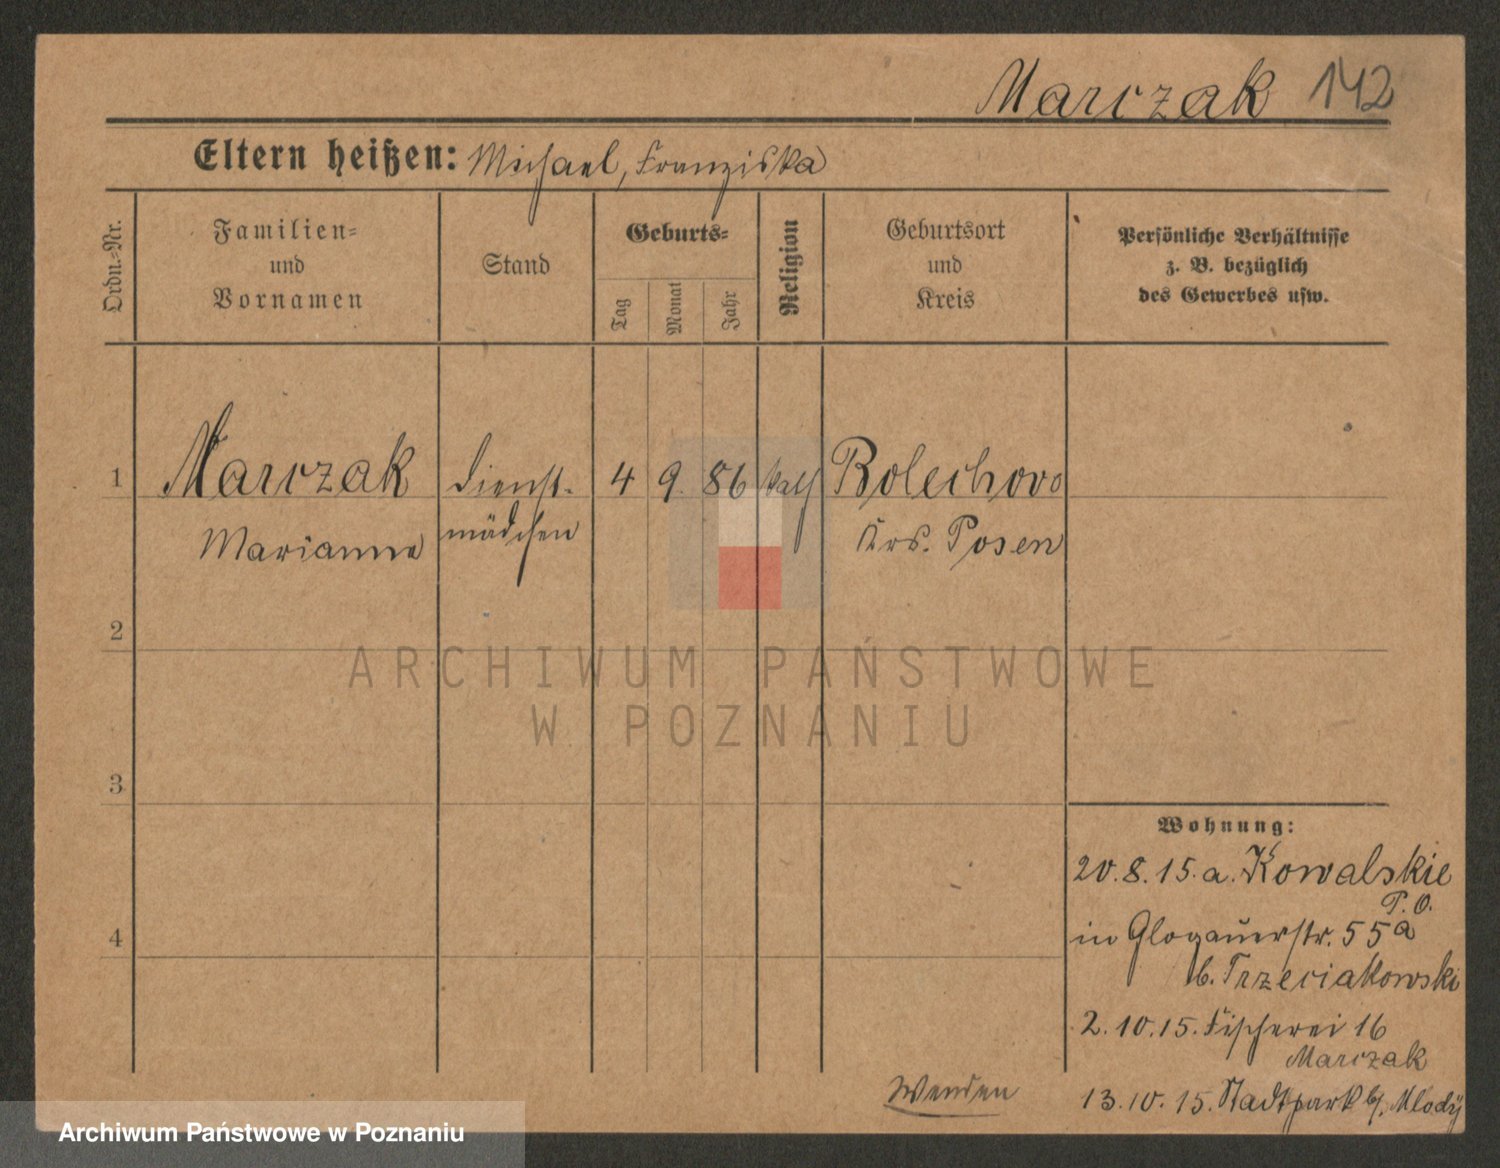 Marczak 142
Eltern heißen: Michael, Franziska
Ordn.-Nr.
Familien-
und
Vornamen
Stand
Geburts-
Tag
Monat
Jahr
Religion
Geburtsort
und
Kreis
Persönliche Verhältnisse
z. B. bezüglich
des Gewerbes usw.
1 Marczak Dienst- 4 9. 86 kath Bolechowo
Marianna mädchen Krs. Posen
2
3
4
Wohnung:
20.8.15. a. Kowalskie
P. O.
in Glogauerstr. 55a
b. Trzeciakowski
2.10.15. Fischerei 16
Marczak
13.10.15. Stadtpark b/. Mlody
Wenden
ARCHIWUM PAŃSTWOWE
W POZNANIU
Archiwum Państwowe w Poznaniu